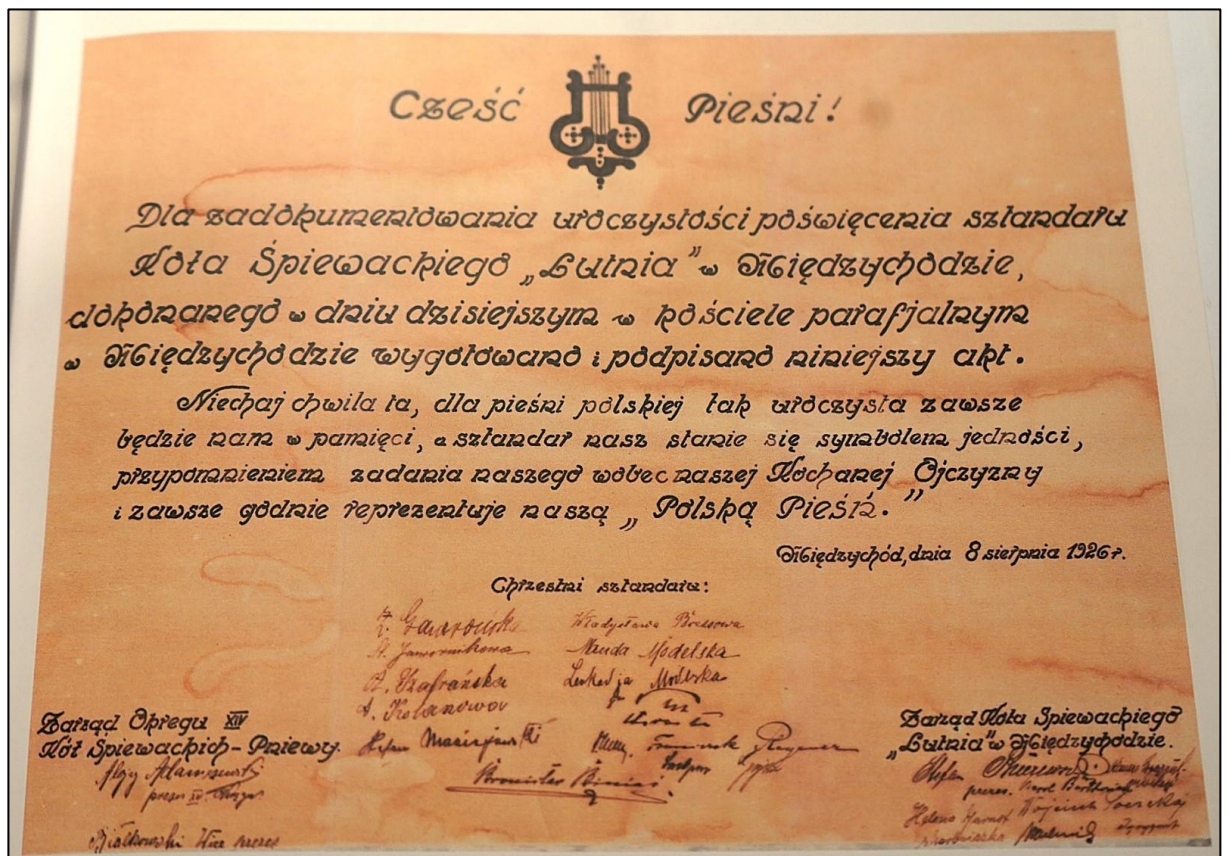 Cześć Pieśni!
Dla zadokumentowania uroczystości poświęcenia sztandaru
Koła Śpiewackiego „Lutnia” w Międzychodzie,
dokonanego w dniu dzisiejszym w kościele parafjalnym
w Międzychodzie wygotowano i podpisano niniejszy akt.
Niechaj chwila ta, dla pieśni polskiej tak uroczysta zawsze
będzie nam w pamięci, a sztandar nasz stanie się symbolem jedności,
przypomnieniem zadania naszego wobec naszej Kochanej Ojczyzny
i zawsze godnie reprezentuje naszą „Polską Pieśń.”
Międzychód, dnia 8 sierpnia 1926 r.
Chrzestni sztandaru:
Władysława
St. Jawornikowa Modelska
Modelska
Franciszek
Bronisław
Zarząd Okręgu XIV
Kół Śpiewackich - Pniewy.
prezes
Białkowski Wice prezes
Zarząd Koła Śpiewackiego
„Lutnia” w Międzychodzie.
Stefan
prezes. Karol
Helena Wojciech